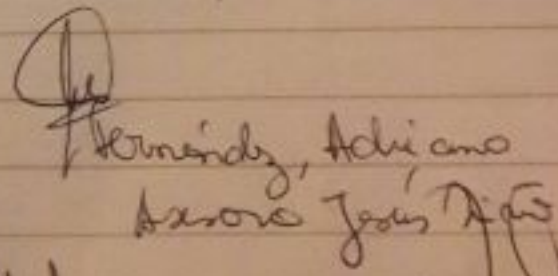 Hernández, Adriano
Asesoro Jesús